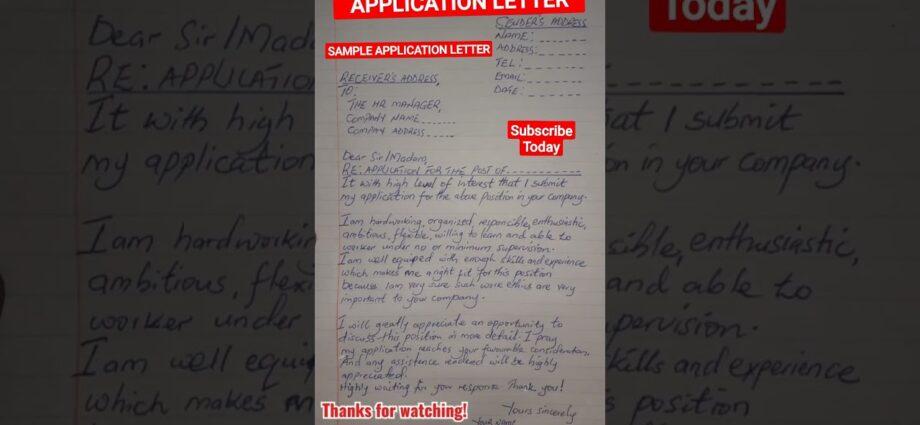 APPLICATION LETTER
SAMPLE APPLICATION LETTER
SENDER'S ADDRESS
NAME: ______
ADDRESS: ______
TEL: ______
EMAIL: ______
DATE: ______
RECEIVER'S ADDRESS,
TO:
THE HR MANAGER,
COMPANY NAME _____
COMPANY ADDRESS _____
Subscribe
Today
Dear Sir/Madam,
RE: APPLICATION FOR THE POST OF ____________
It with high level of interest that I submit
my application for the above position in your company.
I am hardworking, organized, responsible, enthusiastic,
ambitious, flexible, willing to learn and able to
worker under no or minimum supervision.
I am well equiped with enough skills and experience
which makes me a right fit for this position
because I am very sure such work ethics are very
important to your company.
I will greatly appreciate an opportunity to
discuss this position in more detail. I pray
my application reaches your favourable consideration.
And any assistence rendered will be highly
appreciated.
Highly waiting for your response Thank you!
Yours sincerely
YOUR NAME
Thanks for watching!
Dear Sir/Mada
RE: APPLICATION
It with high
my application
I am hardworkin
ambitious, flexi
worker under
I am well equip
which makes m
Today
at I submit
n in your company.
sible, enthusiastic,
and able to
pervision.
skills and experience
s position